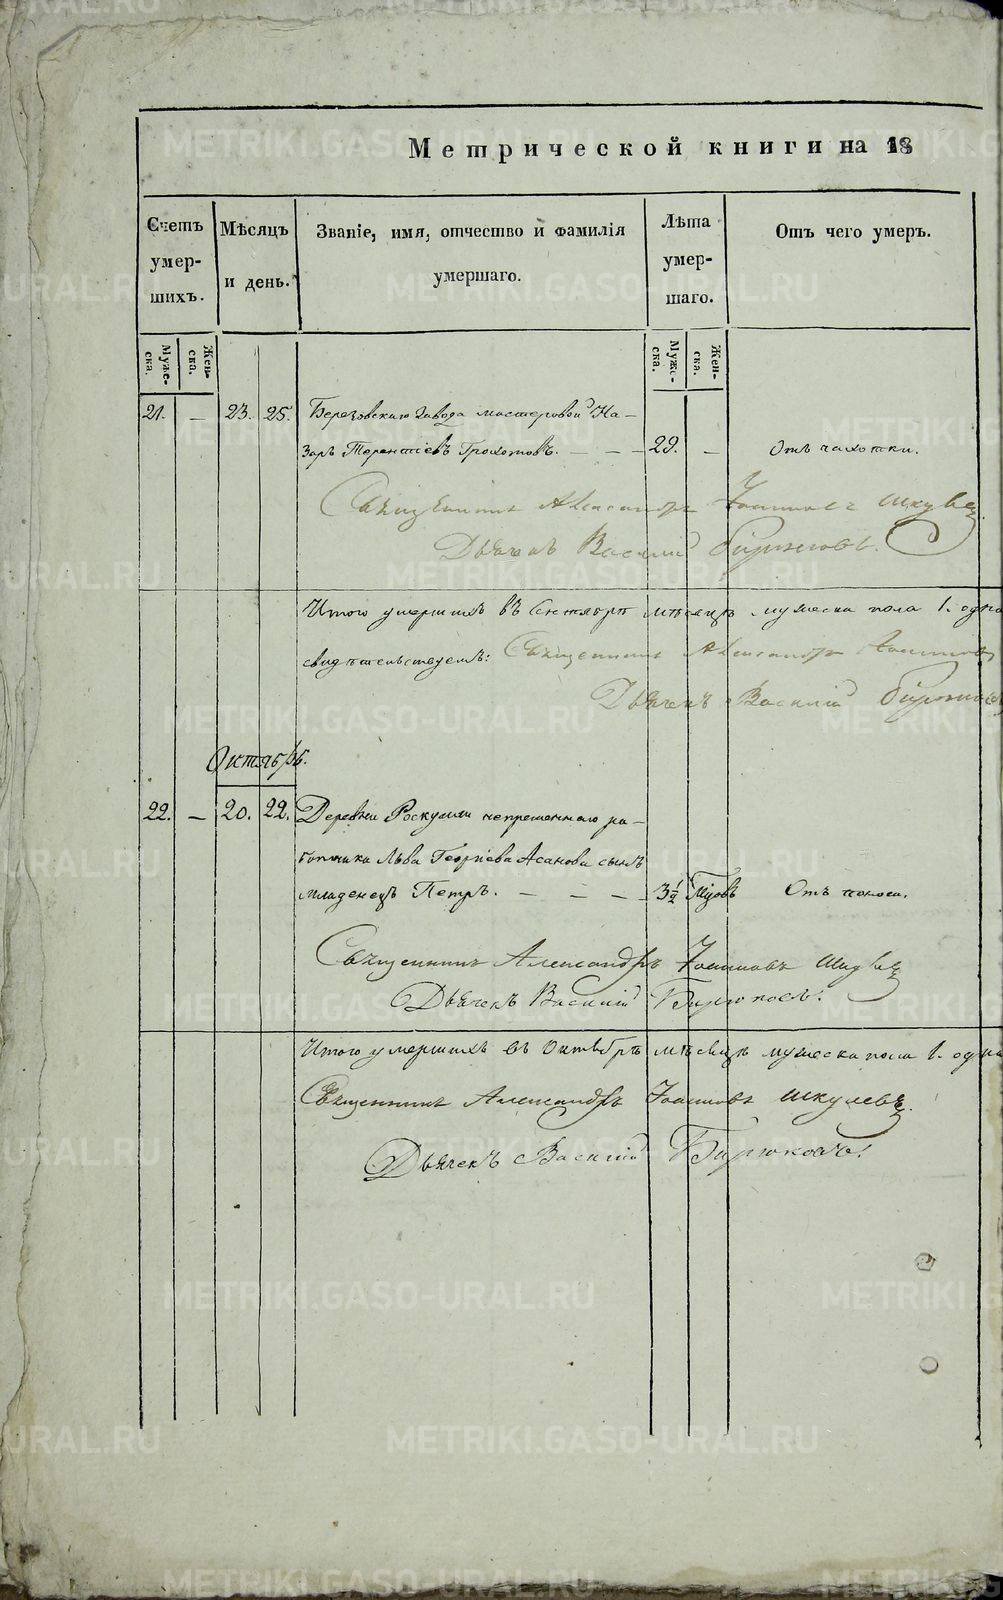 Метрической книги на 18
Счетъ умер-шихъ.
Мѣсяцъ и день.
Званіе, имя, отчество и фамилія умершаго.
Лѣта умер-шаго.
Отъ чего умеръ.
Муже-ска.
Жен-ска.
Муже-ска.
Жен-ска.
21. — 23. 25. Березовскаго завода мастеровой На-
заръ Терентіевъ Грохотовъ. — — — 29. — Отъ чахотки.
Священникъ Александръ Іоанновъ Шкулевъ
Дьячекъ Василій Бирюковъ.
Итого умершихъ въ Сентябрѣ мѣсяцѣ мужеска пола 1. одна
свидѣтельствуемъ: Священникъ Александръ Іоанновъ
Дьячекъ Василій Бирюковъ
Октябрь.
22. — 20. 22. Деревни непременнаго ра-
ботника Льва Георгіева Асанова сынъ
младенецъ Петръ. — — — 3½ Отъ поноса.
Священникъ Александръ Іоанновъ Шкулевъ
Дьячекъ Василій Бирюковъ.
Итого умершихъ въ Октябрѣ мѣсяцѣ мужеска пола 1. одна
Священникъ Александръ Іоанновъ Шкулевъ.
Дьячекъ Василій Бирюковъ.
METRIKI.GASO-URAL.RU